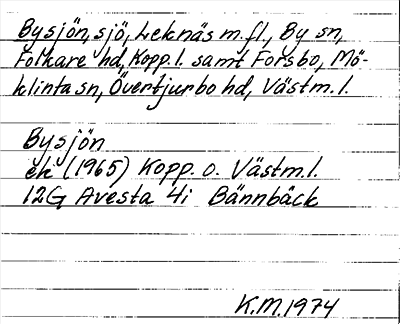 Bysjön, sjö, Leknäs m.fl., By sn,
Folkare hd, Kopp.l. samt Forsbo, Mö-
klinta sn, Övertjurbo hd, Västm.l.
Bysjön
ek (1965) Kopp. o. Västm.l.
12G Avesta 4i Bännbäck
K.M.1974